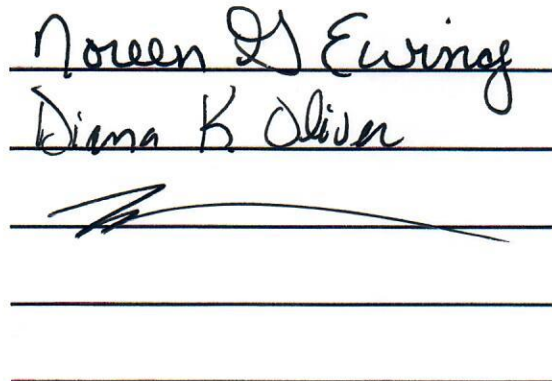 Noreen G Ewing
Diana K Oliver